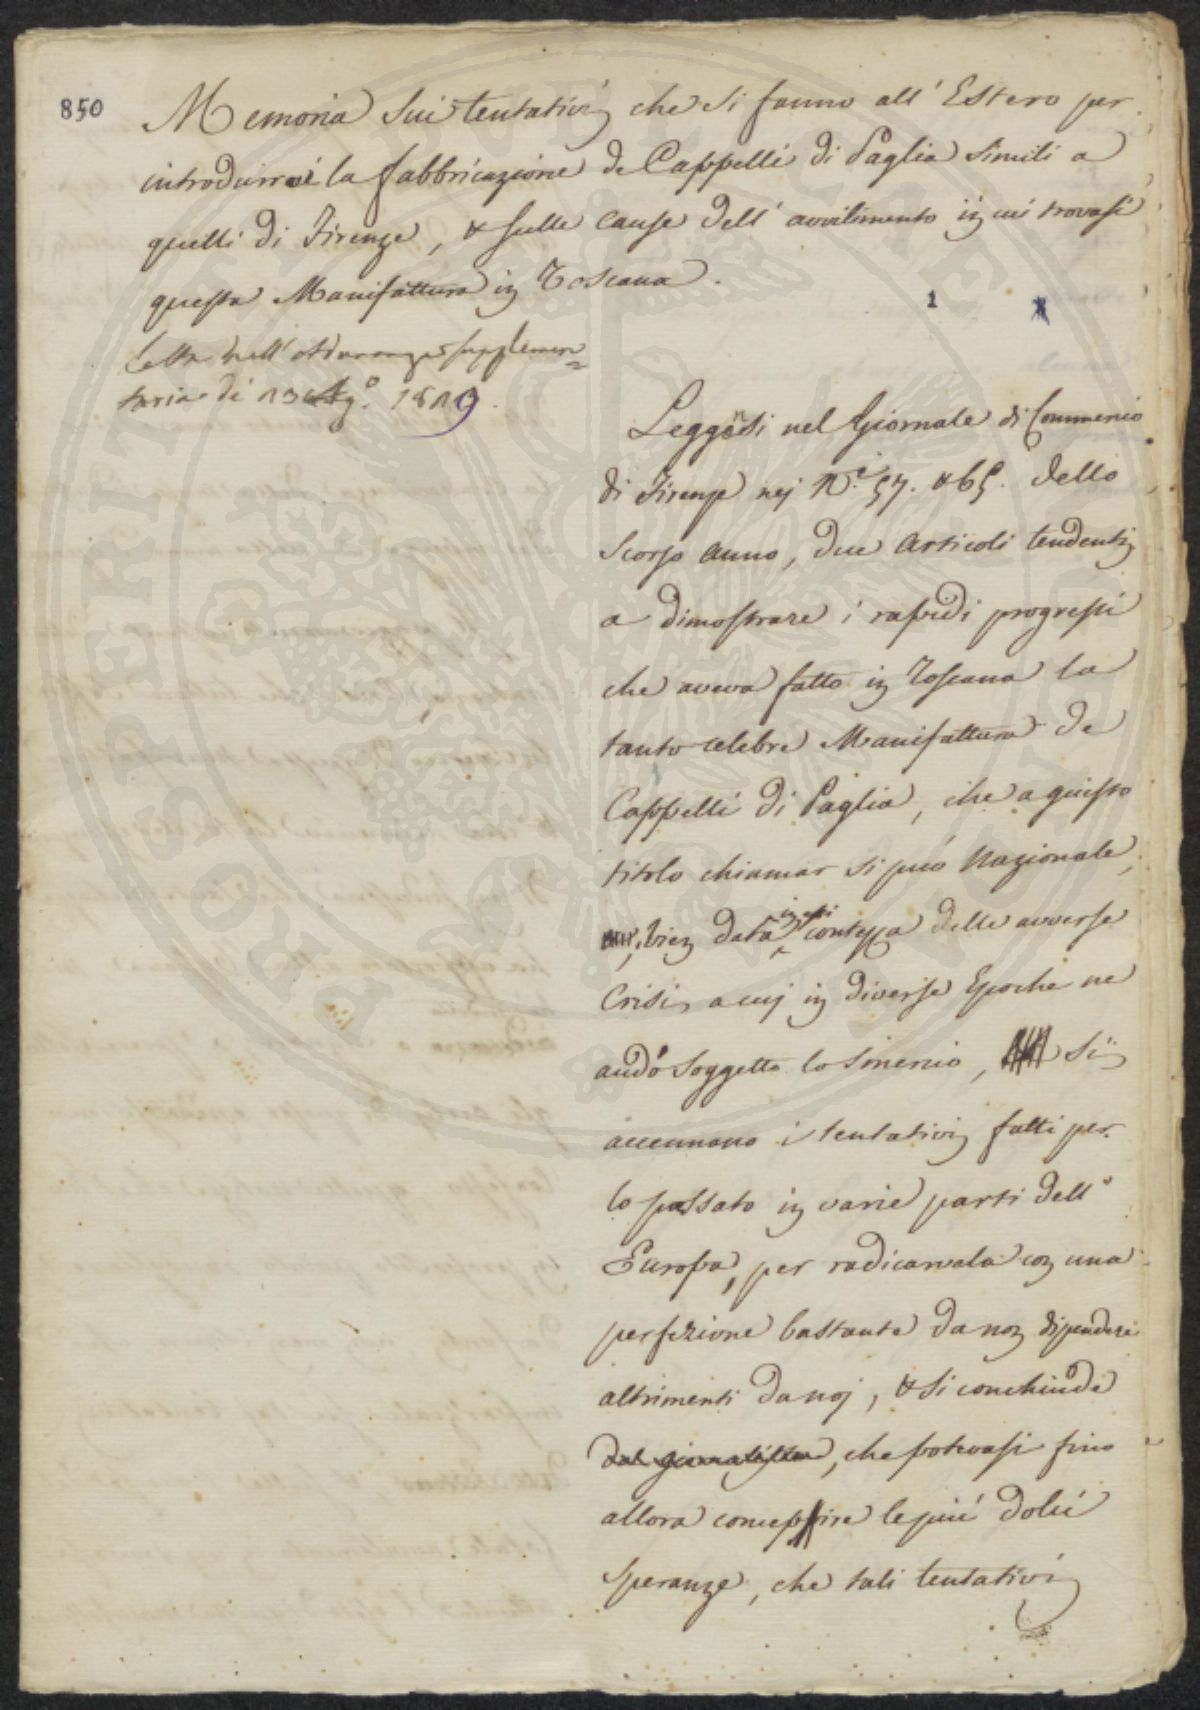 850
Memoria sui tentativi che si fanno all'Estero per
introdurvi la fabbricazione de Cappelli di Paglia simili a
quelli di Firenze, & sulle cause dell'avvilimento in cui trovasi
questa Manifattura in Toscana.
1
Letta nell'Adunanza supplemen=
taria di 13 Ag.o 1819.
Leggonsi nel Giornale di Commercio
di Firenze nei N.i 57. & 65. dello
scorso anno, due articoli tendenti
a dimostrare i rapidi progressi
che aveva fatto in Toscana la
tanto celebre Manifattura de
Cappelli di Paglia, che a giusto
titolo chiamar si può Nazionale,
, ben data in essi contezza delle avverse
Crisi a cui in diverse Epoche ne
andò soggetto lo smercio, si
accennano i tentativi fatti per
lo passato in varie parti dell'
Europa, per radicarvela con una
perfezione bastante da non dipendere
altrimenti da noi, & si conchiude
dal giornalista, che potevasi fino
allora concepire le più dolci
speranze, che tali tentativi
PROSPERITÀ